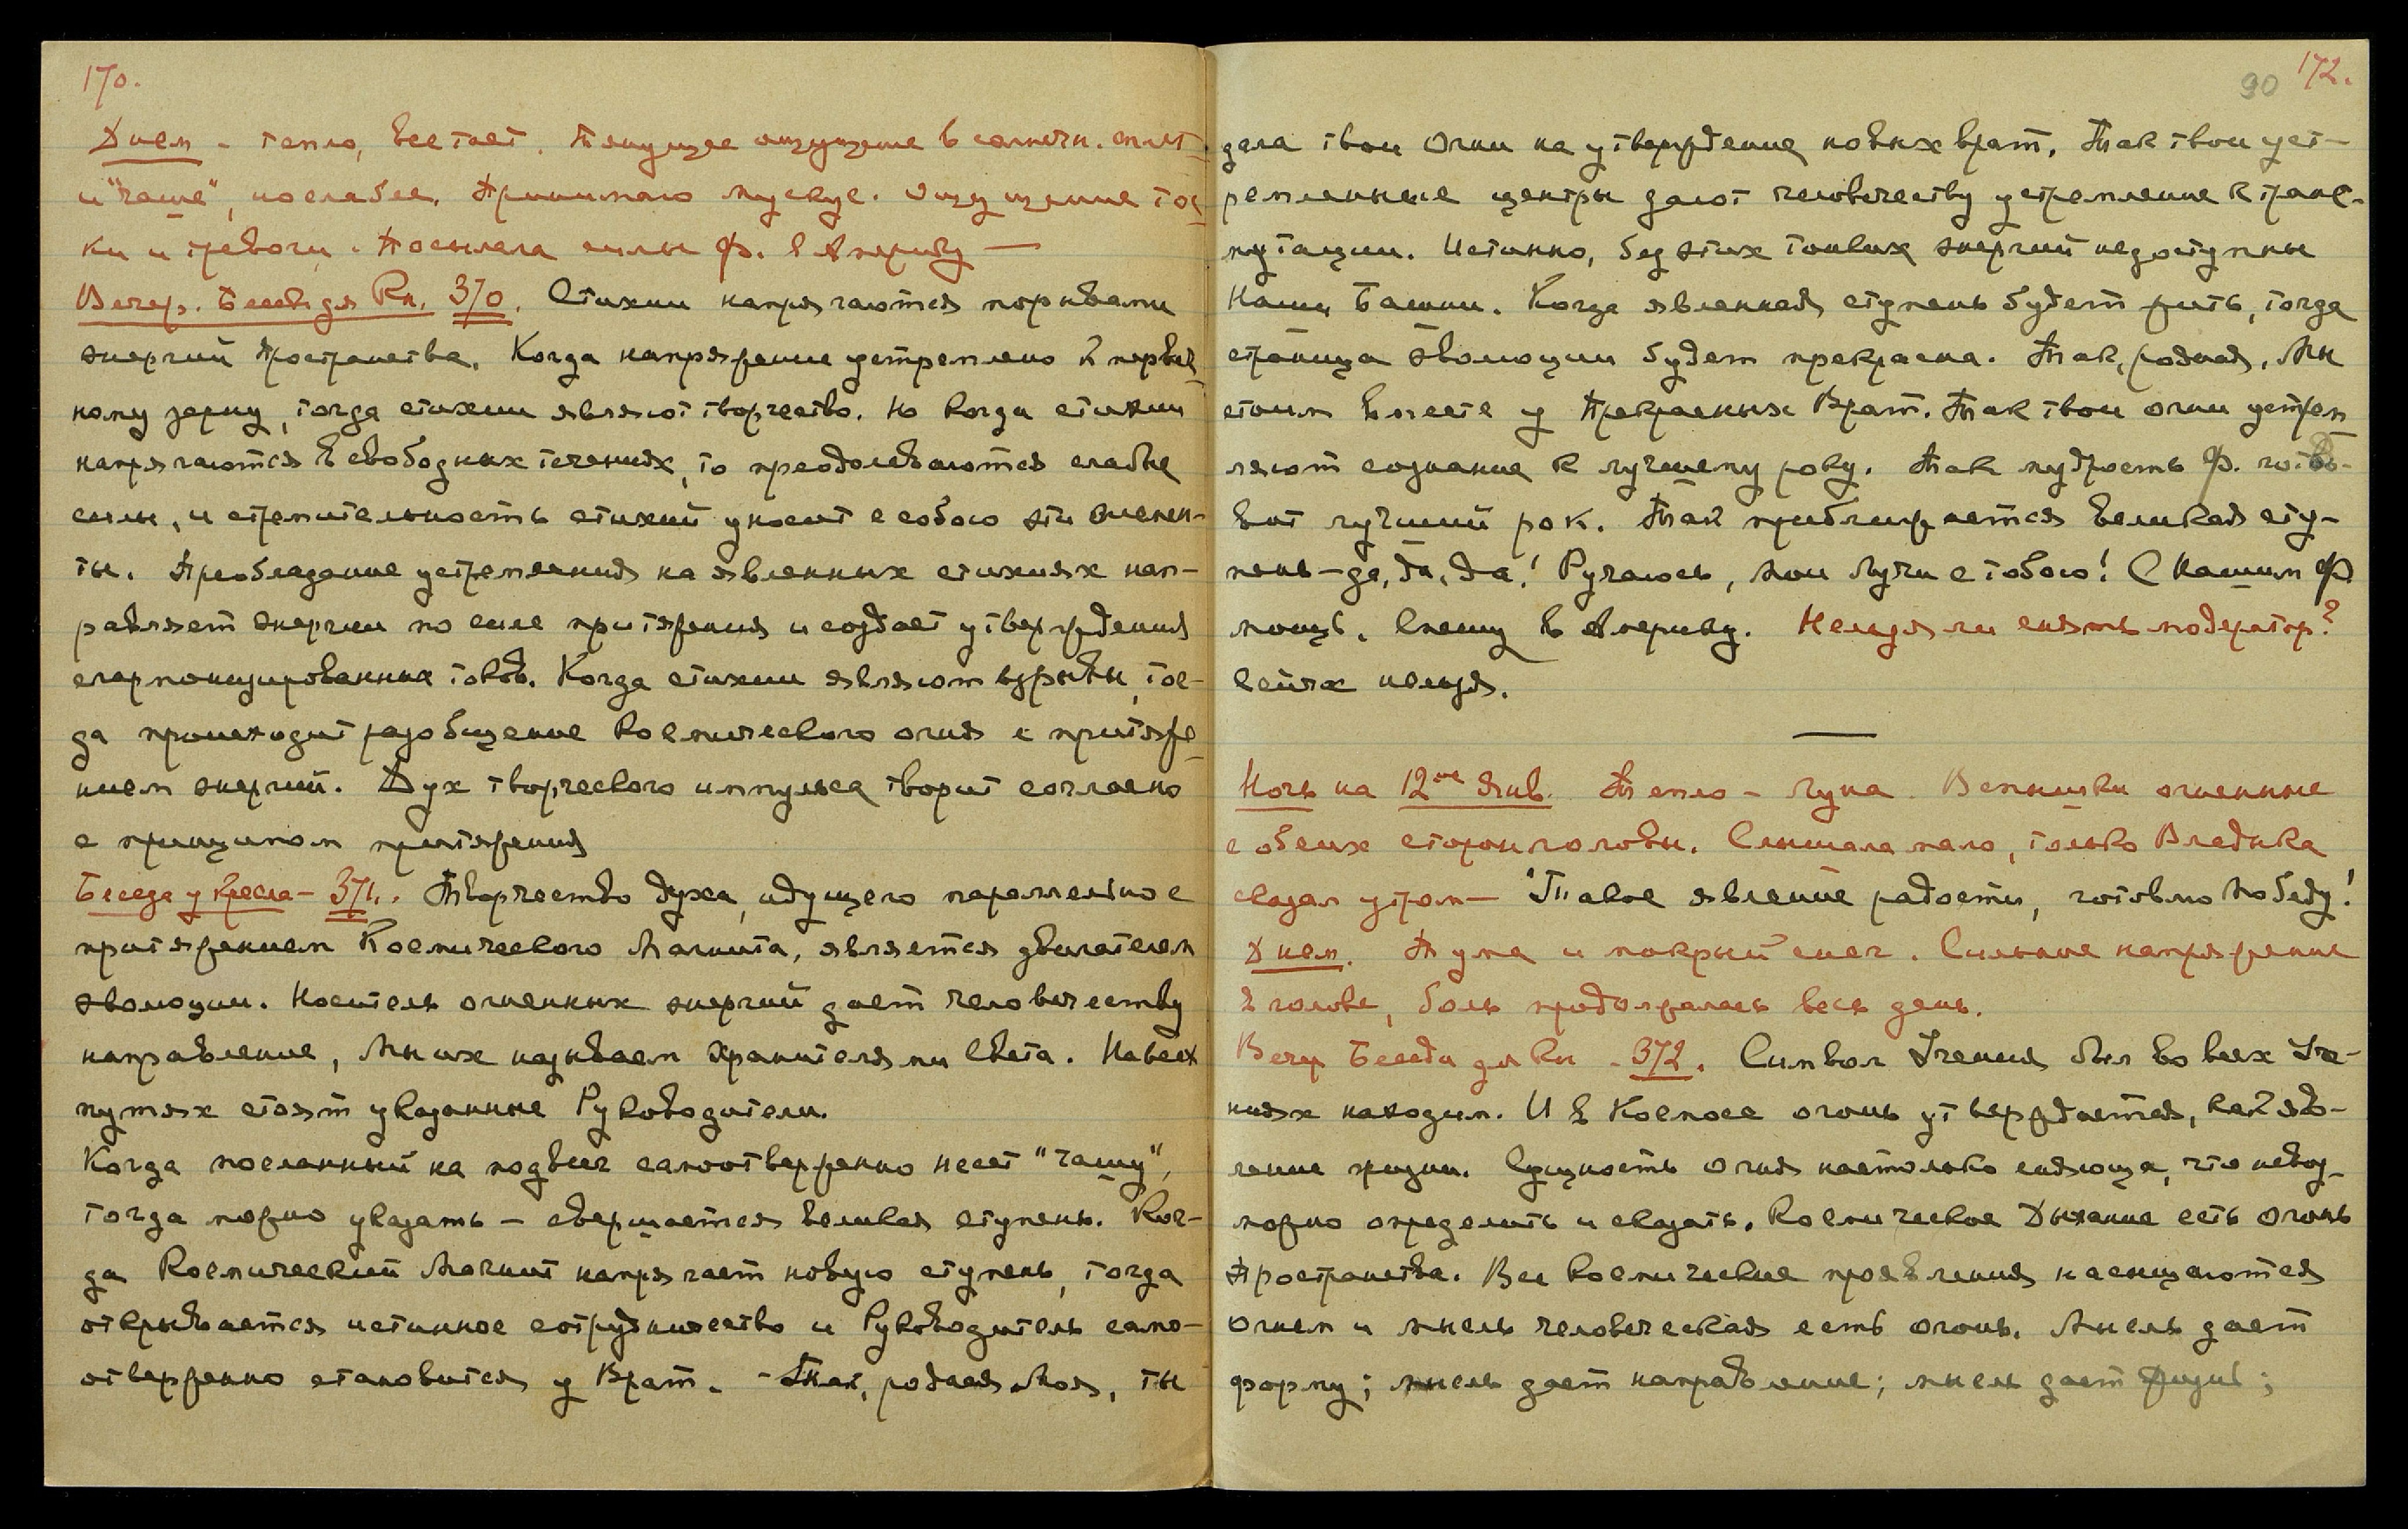 170.
Днем - тепло, все тает. Тянущее ощущение в солнечн. сплет.
и "чаше", но слабее. Принимаю мускус. Ощущение тос-
ки и тревоги. Посылала силы Ф. в Америку —
Вечер. Беседа для Кн. 370. Стихии напрягаются порывами
энергий пространства. Когда напряжение устремлено к первич-
ному зерну, тогда стихии являют творчество. Но когда стихии
напрягаются в свободных течениях, то преодолеваются слабые
силы, и стремительность стихий уносит с собою эти элемен-
ты. Преобладание устремления на явленных стихиях нап-
равляет энергии по силе притяжения и создает утверждения
сгармонизированных токов. Когда стихии являют взрывы, тог-
да происходит разобщение космического огня с притяже-
нием энергий. Дух творческого импульса творит согласно
с принципом притяжения
Беседа у кресла - 371. Творчество духа, идущего параллельно с
притяжением Космического Магнита, является двигателем
эволюции. Носитель огненных энергий дает человечеству
направление, Мы их называем Хранителями Света. На всех
путях стоят указанные Руководители.
Когда посланный на подвиг самоотверженно несет "чашу",
тогда можно указать - свершается великая ступень. Ког-
да Космический Магнит напрягает новую ступень, тогда
открывается истинное сотрудничество и Руководитель само-
отверженно становится у Врат. - Так, родная Моя, ты
90 172.
дала твои Огни на утверждение новых врат. Так твои уст-
ремленные центры дают человечеству устремление к транс-
мутации. Истинно, без этих тонких энергий недоступны
Наши Башни. Когда явленная ступень будет жить, тогда
страница эволюции будет прекрасна. Так, родная, Мы
стоим вместе у Прекрасных Врат. Так твои огни устрем
ляют сознание к лучшему року. Так мудрость Ф. гото-
вит лучший рок. Так приближается великая сту-
пень - да, да, да! Ручаюсь, Мои Лучи с тобою! С Нашим Ф.
мощь. Спешу в Америку. Нельзя ли снять модератор?
Сейчас нельзя.
—
Ночь на 12ое Янв. Тепло - Луна. Вспышки огненные
с обеих сторон головы. Слышала мало, только Владыка
сказал утром - "Такое явление радости, готовлю Победу!
Днем. Тума и мокрый снег. Сильное напряжение
в голове, боль продолжалась весь день.
Вечер Беседы для Кн - 372. Символ Учения был во всех Уче-
ниях находим. И в Космосе огонь утверждается, как яв-
ление жизни. Сущность Огня настолько сияюща, что невоз-
можно определить и сказать. Космическое Дыхание есть Огонь
Пространства. Все космические проявления насыщаются
Огнем и мысль человеческая есть огонь. Мысль дает
форму; мысль дает направление; мысль дает жизнь;